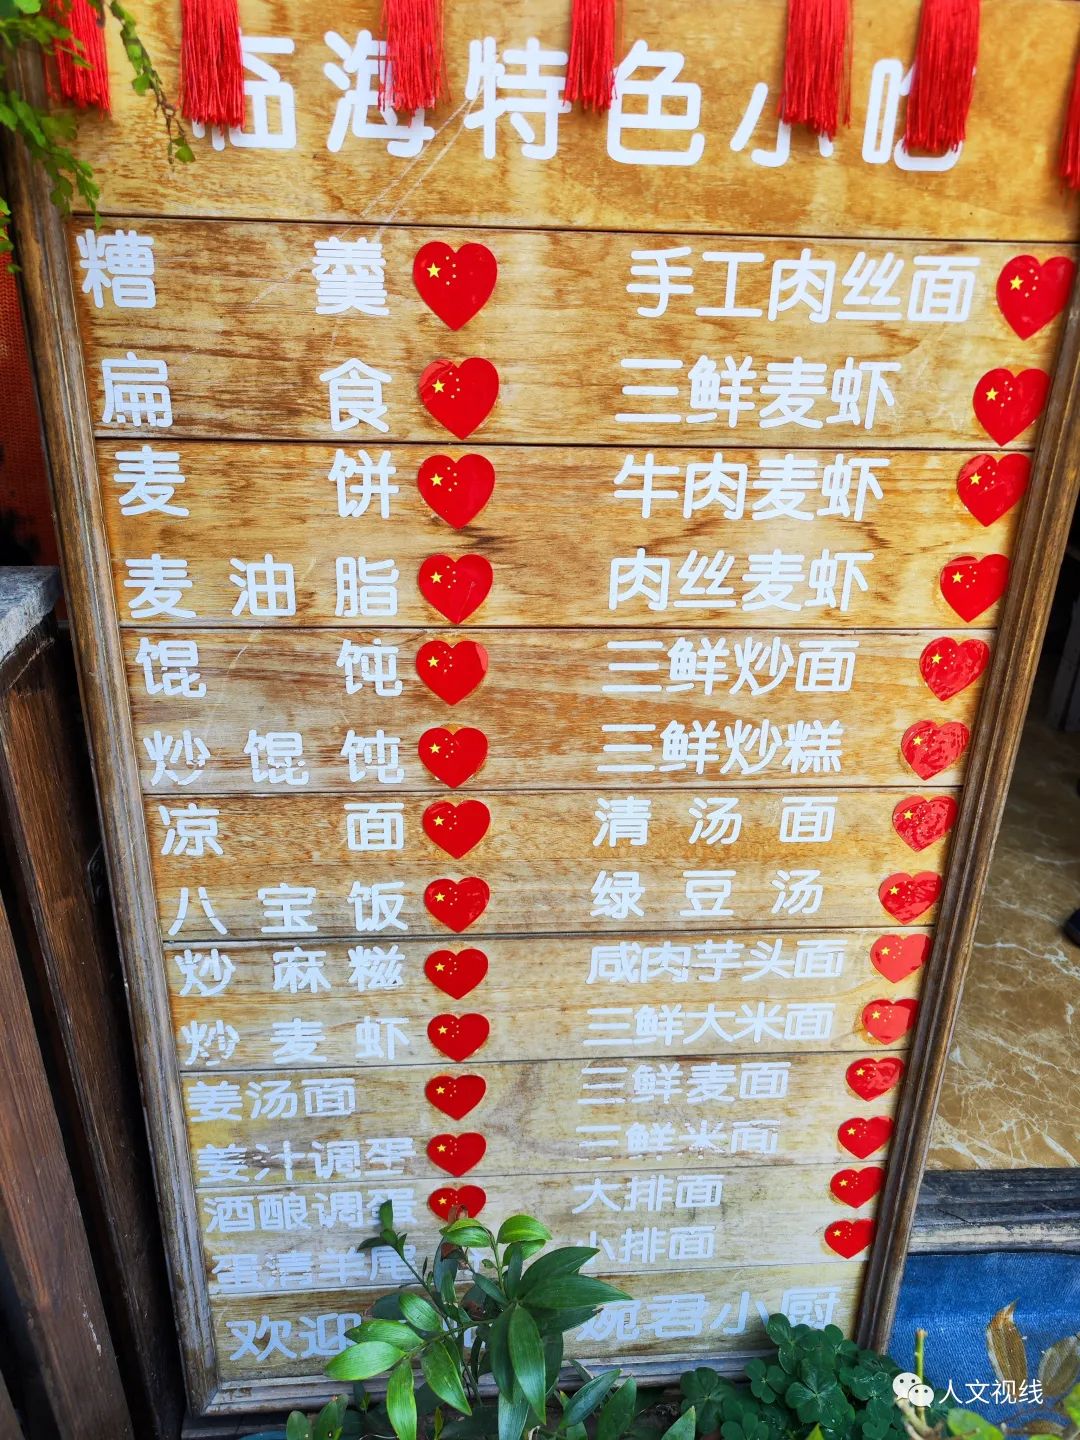 临海特色小吃
糟羹 手工肉丝面
扁食 三鲜麦虾
麦饼 牛肉麦虾
麦油脂 肉丝麦虾
馄饨 三鲜炒面
炒馄饨 三鲜炒糕
凉面 清汤面
八宝饭 绿豆汤
炒麻糍 咸肉芋头面
炒麦虾 三鲜大米面
姜汤面 三鲜麦面
姜汁调蛋 三鲜米面
酒酿调蛋 大排面
蛋清羊尾 小排面
欢迎 婉君小厨
人文视线